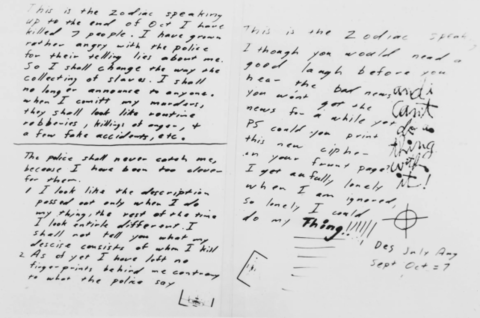 This is the Zodiac speaking
up to the end of Oct I have
killed 7 people. I have grown
rather angry with the police
for their telling lies about me.
So I shall change the way the
collecting of slaves. I shall
no longer announce to anyone.
when I comitt my murders,
they shall look like routine
robberies, killings of anger, +
a few fake accidents, etc.
The police shall never catch me,
because I have been too clever
for them.
1 I look like the description
passed out only when I do
my thing, the rest of the time
I look entirle different. I
shall not tell you what my
descise consists of when I kill
2 As of yet I have left no
fingerprints behind me contrary
to what the police say
This is the Zodiac speak
I though you would need a
good laugh before you
hear the bad news
you won't get the
news for a while yet
PS could you print
this new cipher
on your frunt page?
I get awfully lonely
when I am ignored,
so lonely I could
do my Thing!!!!!!
and i
can't
do a
thing
with
it!
Des July Aug
Sept Oct = 7